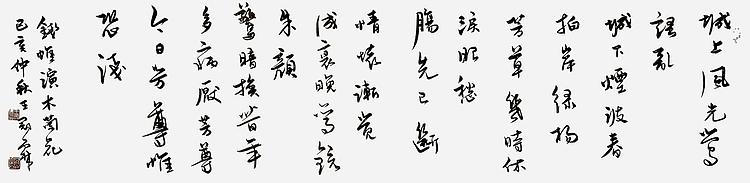 城上風光鶯
語亂
城下煙波春
拍岸綠楊
芳草幾時休
淚眼愁
腸先已斷
情懷漸覺
成衰晚鸞鏡
朱顏
驚暗換昔年
多病厭芳尊
今日芳尊惟
恐淺
錢惟演木蘭花
己亥仲秋